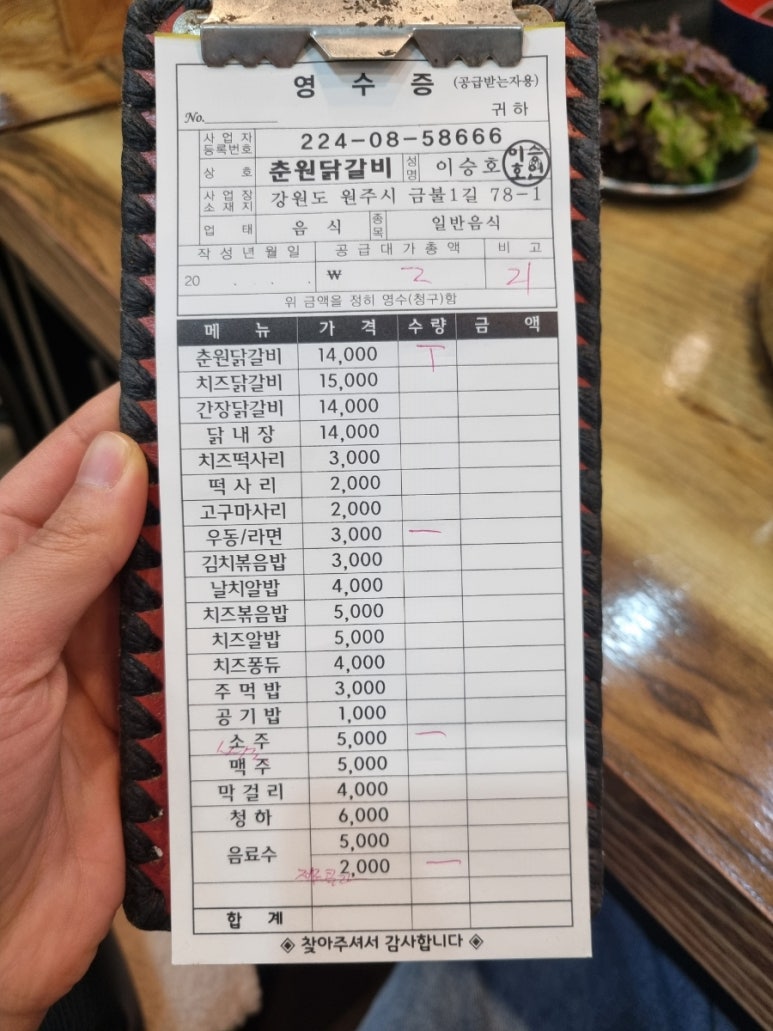 영 수 증 (공급받는자용)
No. 귀 하
사 업 자 등록번호 224-08-58666
상 호 춘원닭갈비 성명 이승호
사 업 장 소 재 지 강원도 원주시 금불1길 78-1
업 태 음 식 종목 일반음식
작 성 년 월 일 공 급 대 가 총 액 비 고
20 . . . ₩ 2 21
위 금액을 정히 영수(청구)함
메 뉴 가 격 수 량 금 액
춘원닭갈비 14,000 T
치즈닭갈비 15,000
간장닭갈비 14,000
닭 내 장 14,000
치즈떡사리 3,000
떡 사 리 2,000
고구마사리 2,000
우동/라면 3,000 一
김치볶음밥 3,000
날치알밥 4,000
치즈볶음밥 5,000
치즈알밥 5,000
치즈퐁듀 4,000
주 먹 밥 3,000
공 기 밥 1,000
소 주 5,000 一
맥 주 5,000
막 걸 리 4,000
청 하 6,000
음료수 5,000
2,000 一
합 계
◈ 찾아주셔서 감사합니다 ◈